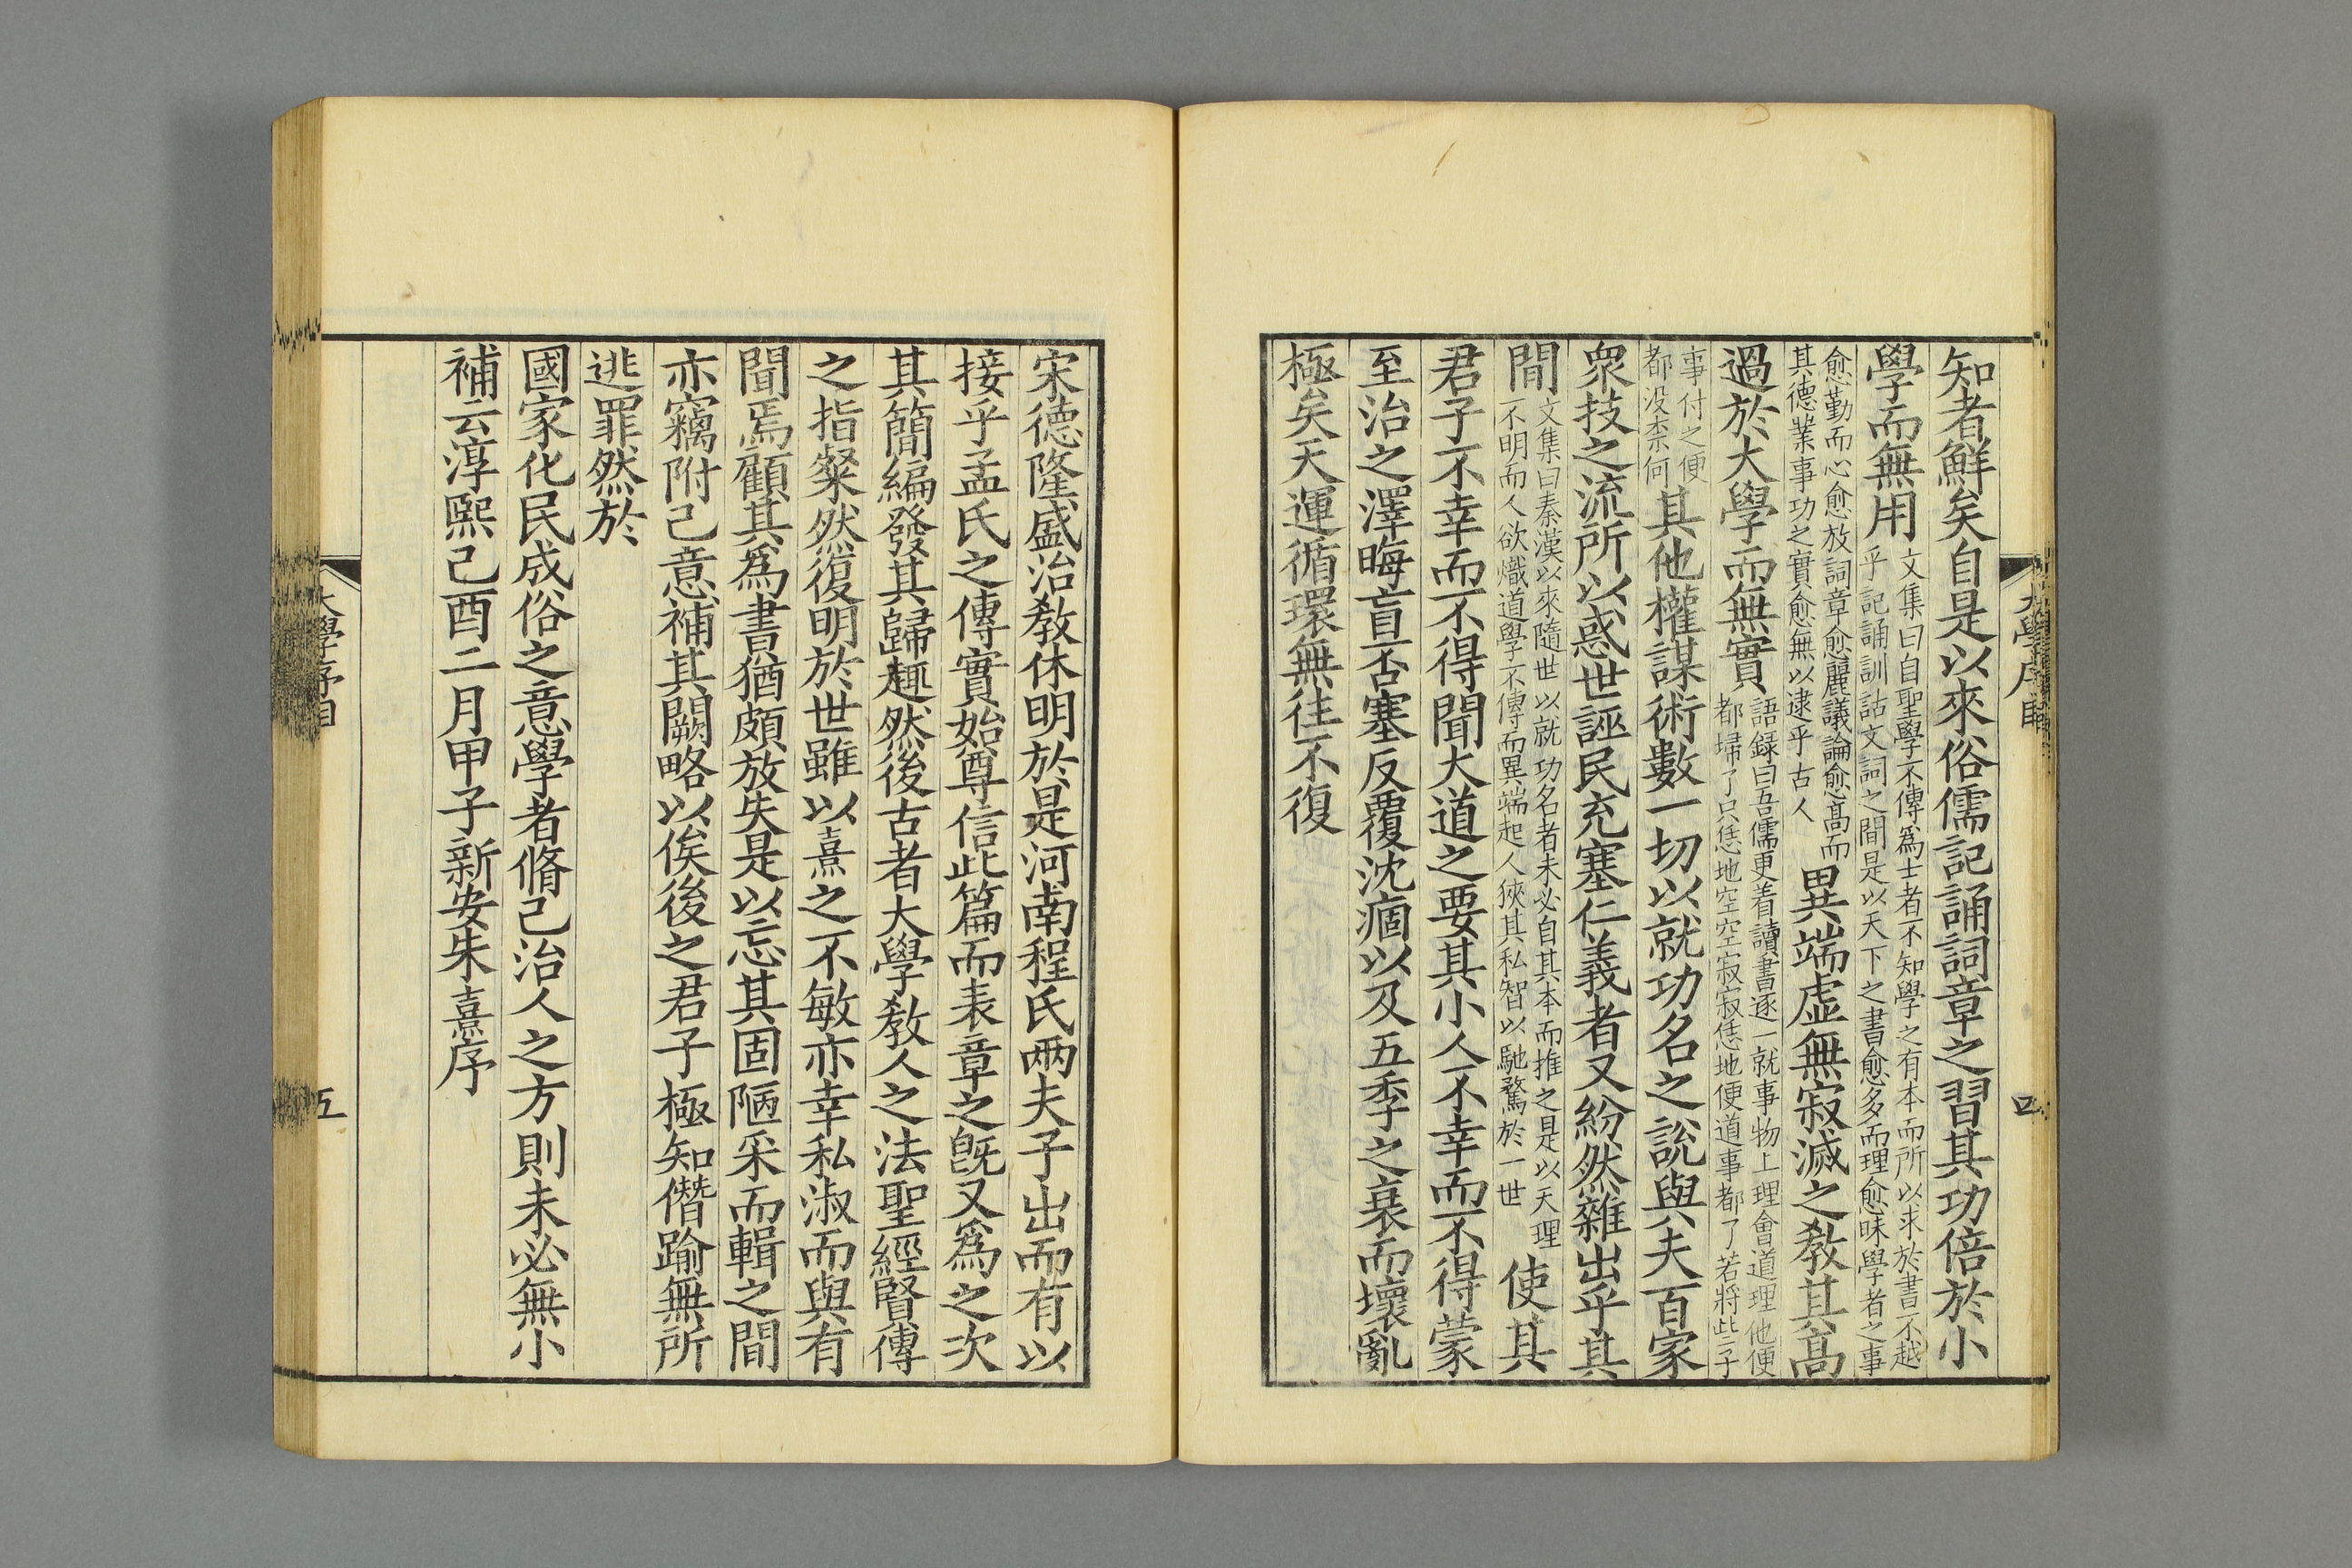 知者鮮矣自是以來俗儒記誦詞章之習其功倍於小
學而無用
文集曰自聖學不傳爲士者不知學之有本而所以求於書不越
乎記誦訓詁文詞之間是以天下之書愈多而理愈昧學者之事
愈勤而心愈放詞章愈麗議論愈髙而
其德業事功之實愈無以逮乎古人
異端虚無寂滅之教其髙
過於大學而無實
語録曰吾儒更着讀書逐一就事物上理會道理他便
都埽了只恁地空空寂寂恁地便道事都了若將此子
事付之便
都没柰何
其他權謀術數一切以就功名之說與夫百家
衆技之流所以惑世誣民充塞仁義者又紛然雜出乎其
間
文集曰秦漢以來隨世以就功名者未必自其本而推之是以天理
不明而人欲熾道學不傳而異端起人狹其私智以馳騖於一世
使其
君子不幸而不得聞大道之要其小人不幸而不得蒙
至治之澤晦盲否塞反覆沈痼以及五季之衰而壞亂
極矣天運循環無往不復
四
宋德隆盛治教休明於是河南程氏兩夫子出而有以
接乎孟氏之傳實始尊信此篇而表章之旣又爲之次
其簡編發其歸趣然後古者大學教人之法聖經賢傳
之指粲然復明於世雖以熹之不敏亦幸私淑而與有
聞焉顧其爲書猶頗放失是以忘其固陋采而輯之間
亦竊附己意補其闕略以俟後之君子極知僭踰無所
逃罪然於
國家化民成俗之意學者脩己治人之方則未必無小
補云淳熙己酉二月甲子新安朱熹序
五